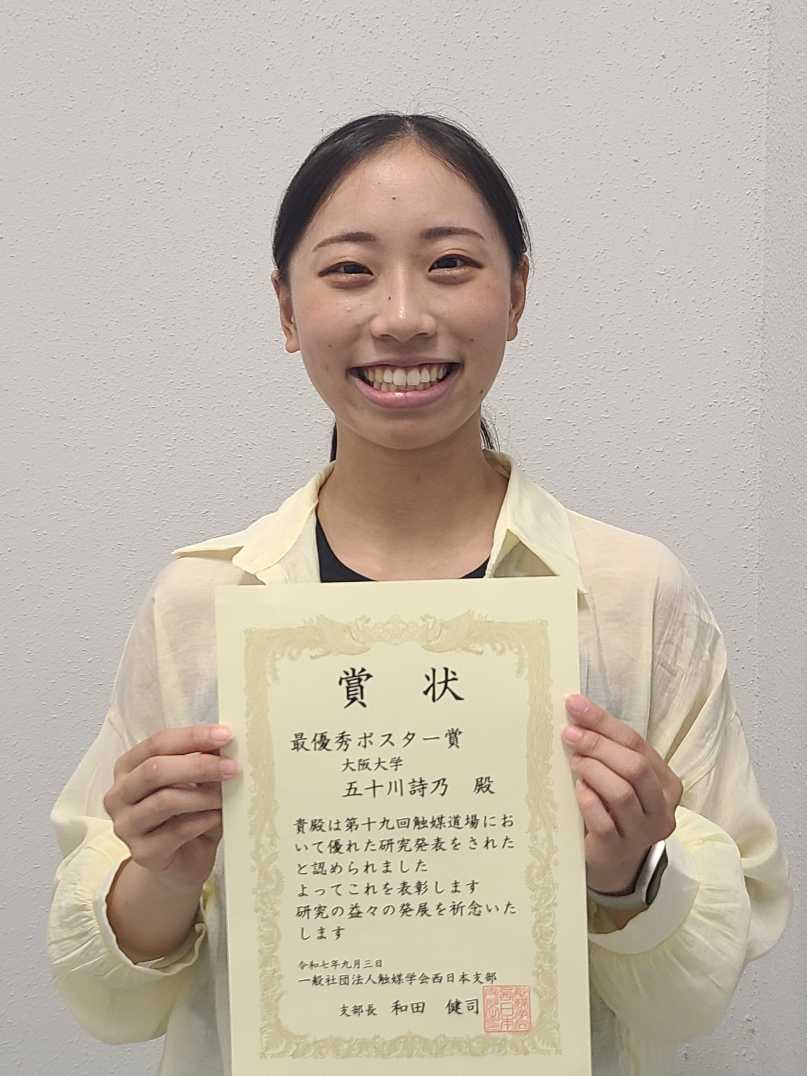 賞状
最優秀ポスター賞
大阪大学
五十川詩乃 殿
貴殿は第十九回触媒道場にお
いて優れた研究発表をされた
と認められました
よってこれを表彰します
研究の益々の発展を祈念いた
します
令和七年九月三日
一般社団法人触媒学会西日本支部
支部長 和田 健司